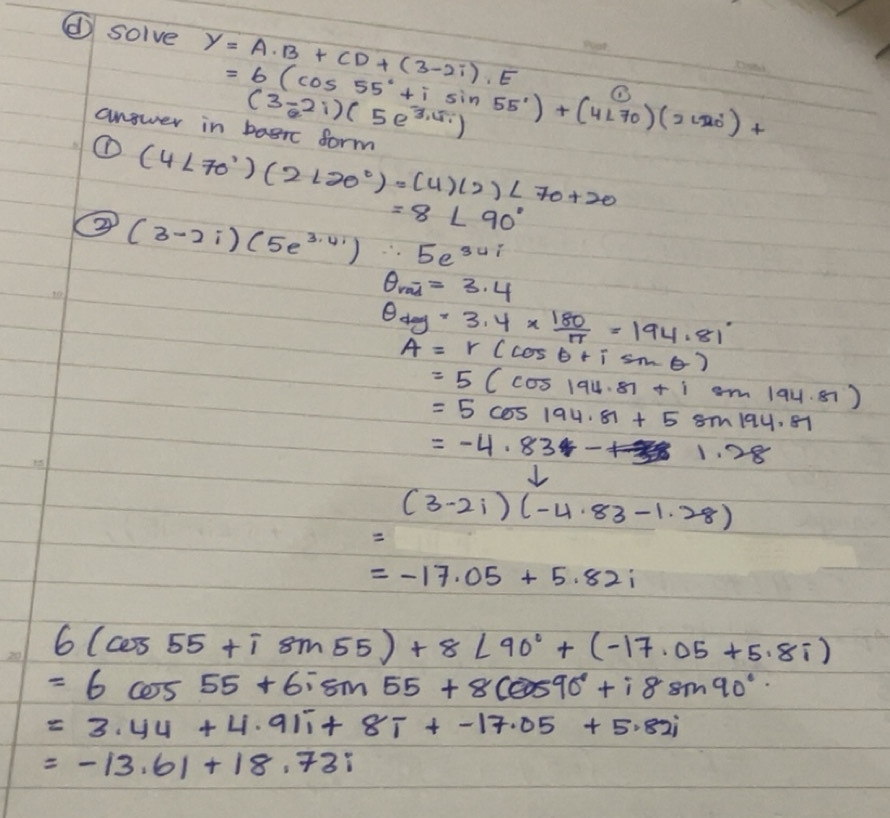 ⓓ solve Y = A.B + CD + (3-2i).E
= 6 (cos 55° + i sin 55°) + (4∠70)(2∠20°) +
①
(3-2i)(5e^3.4i)
answer in basic form
① (4∠70°)(2∠20°) = (4)(2)∠70+20
= 8∠90°
② (3-2i)(5e^3.4i) ∴ 5e^3.4i
θrad = 3.4
θdeg = 3.4 × 180/π = 194.81°
A = r (cos θ + i sin θ)
= 5 (cos 194.81 + i sin 194.81)
= 5 cos 194.81 + 5 sin 194.81
= -4.83 - 1.28
↓
(3-2i)(-4.83-1.28)
=
= -17.05 + 5.82i
6 (cos 55 + i sin 55) + 8∠90° + (-17.05 + 5.8i)
= 6 cos 55 + 6i sin 55 + 8 cos 90° + i 8 sin 90°.
= 3.44 + 4.91i + 8i + -17.05 + 5.82i
= -13.61 + 18.73i